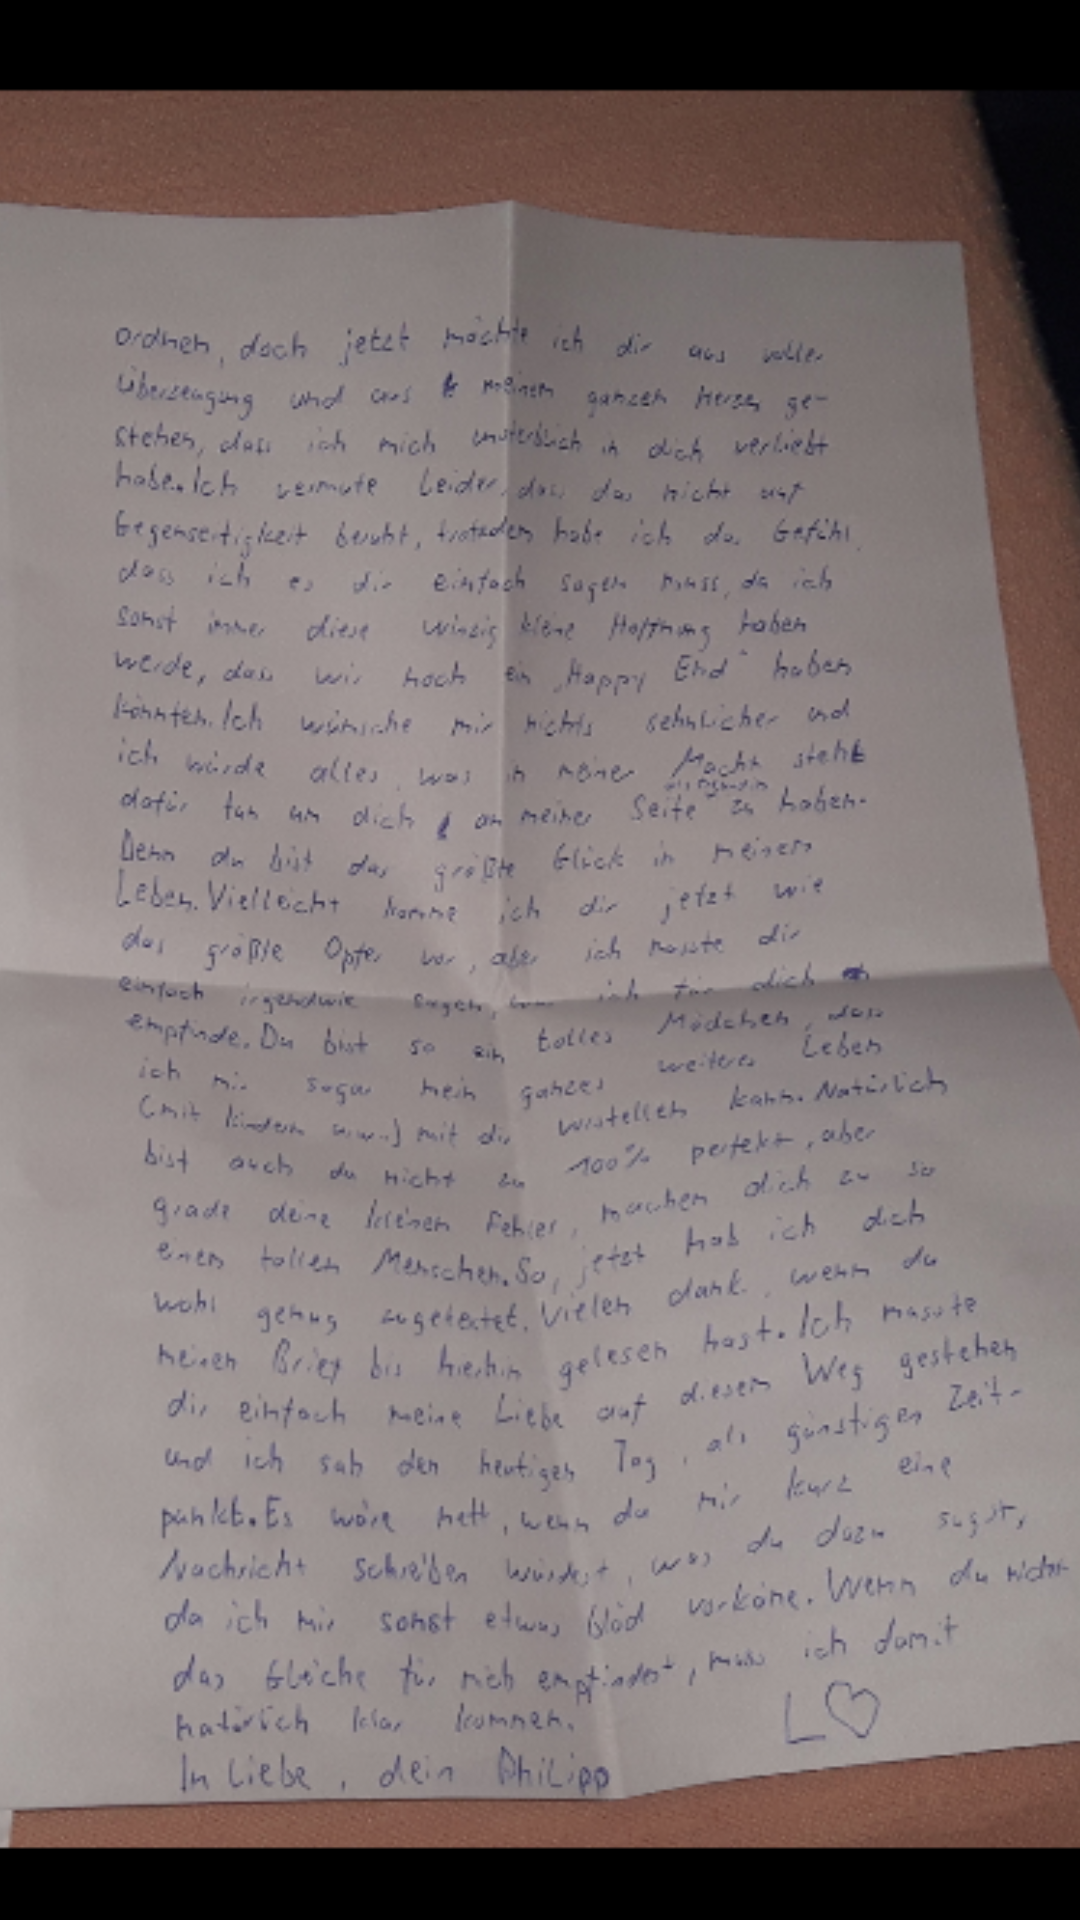 ordnen, doch jetzt möchte ich dir aus voller
Überzeugung und aus meinem ganzen Herzen ge-
stehen, dass ich mich unsterblich in dich verliebt
habe. Ich vermute leider, dass das nicht auf
Gegenseitigkeit beruht, trotzdem habe ich das Gefühl,
dass ich es dir einfach sagen muss, da ich
sonst immer diese winzig kleine Hoffnung haben
werde, dass wir noch ein „Happy End" haben
könnten. Ich wünsche mir nichts sehnlicher und
ich würde alles, was in meiner Macht steht
dafür tun um dich an meiner Seite zu haben.
Denn du bist das größte Glück in meinem
Leben. Vielleicht komme ich dir jetzt wie
das größte Opfer vor, aber ich musste dir
einfach irgendwie sagen, was ich für dich
empfinde. Du bist so ein tolles Mädchen, dass
ich mir sogar mein ganzes weiteres Leben
(mit Kindern usw.) mit dir vorstellen kann. Natürlich
bist auch du nicht zu 100% perfekt, aber
grade deine kleinen Fehler, machen dich zu so
einem tollen Menschen. So, jetzt hab ich dich
wohl genug zugetextet. Vielen dank, wenn du
meinen Brief bis hierhin gelesen hast. Ich musste
dir einfach meine Liebe auf diesem Weg gestehen
und ich sah den heutigen Tag, als günstigen Zeit-
punkt. Es wäre nett, wenn du mir kurz eine
Nachricht schreiben würdest, was du dazu sagst,
da ich mir sonst etwas blöd vorkäme. Wenn du nicht
das Gleiche für mich empfindest, muss ich damit
natürlich klar kommen.
L♡
In Liebe, dein Philipp